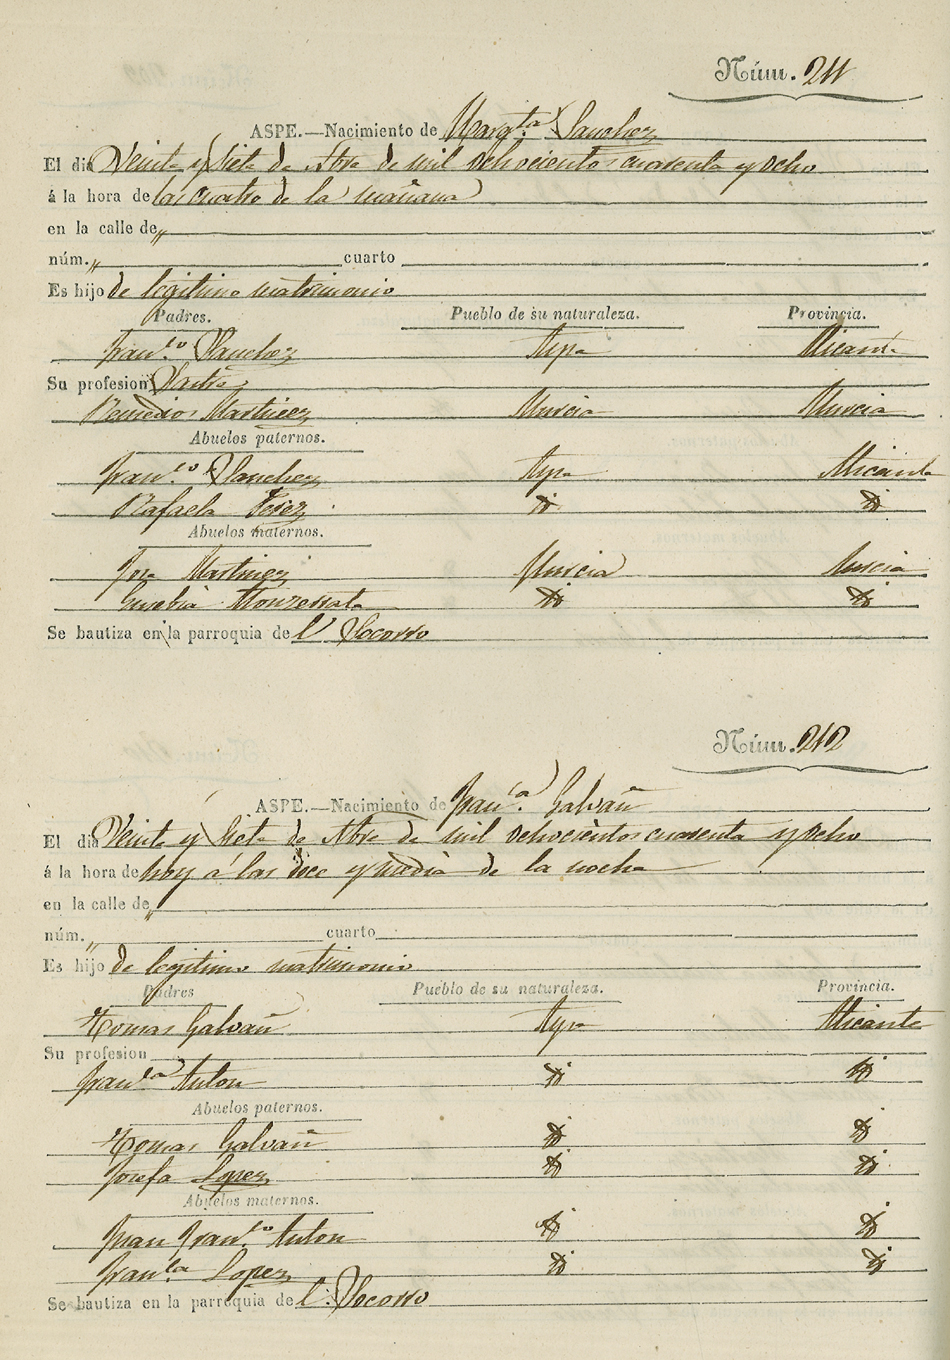 Núm. 211
ASPE.—Nacimiento de Marg.ta Sanchez
El dia Veinte y Siete de Abre de mil ochocientos cuarenta y ocho
á la hora de las cuatro de la mañana
en la calle de „
núm. „ cuarto
Es hijo de legitimo matrimonio
Padres. Pueblo de su naturaleza. Provincia.
Fran.co Sanchez Aspe Alicante
Su profesion Sastre
Remedios Martinez Murcia Murcia
Abuelos paternos.
Fran.co Sanchez Aspe Alicante
Rafaela Perez id id
Abuelos maternos.
Jose Martinez Murcia Murcia
Eusebia id id
Se bautiza en la parroquia de l' Socorro
Núm. 212
ASPE.—Nacimiento de Fran.ca Galvañ
El dia Veinte y Siete de Abre de mil ochocientos cuarenta y ocho
á la hora de hoy á las doce y media de la noche
en la calle de „
núm. „ cuarto
Es hijo de legitimo matrimonio
Padres Pueblo de su naturaleza. Provincia.
Tomas Galvañ Aspe Alicante
Su profesion
Fran.ca Anton id id
Abuelos paternos.
Tomas Galvañ id id
Josefa Lopez id id
Abuelos maternos.
Juan Fran.co Anton id id
Fran.ca Lopez id id
Se bautiza en la parroquia de l' Socorro